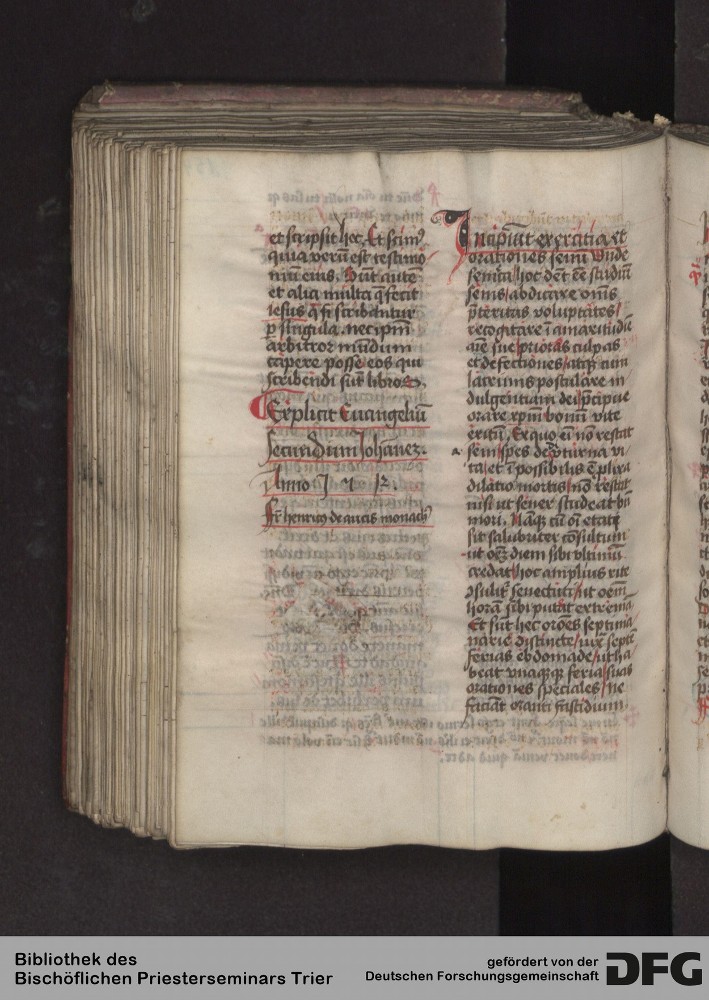 et scripsit hec. Et scim9
quia verū est testimo
niū eius. Sūt autē
et alia multa q̄ fecit
iesus q̄ si scribantur
p singula. nec ipm̄
arbitror mūdum
capere posse eos qui
scribendi sūt libros
Explicit Euangeliū
secundum Iohannez.
Anno
Fr̄ henricꝰ de monachꝰ
Incipiūt exercitia et
orationes senū Unde
hoc studiū
senis abdicare om̄is
p̄teritas voluptates
recogitare ī amaritudīe
aīe sue priores culpas
et defectiones atqꝫ cum
lacrimis postulare in
dulgentiam de p̄cipue
orare xpm̄ bone vite
exitū. Ex quo eī nō restat
seni spes vi
ta et ī possibilis ē plixa
dilatio mortis nō restat
nisi ut senex studeat bn̄
mori. Nāqꝫ cū oī etate
sit salubriter cōsultum
ut oēꝫ diem sibi vltimū
credat hoc amplius rite
ꝯsulit̄ senectuti ut oēm
horā sibi putet extremā
Et sūt hec orōnes septima
narie distincte iuxͣ septē
ferias ebdomade ut ha
beat vnaqꝫqꝫ feria suas
orationes speciales ne
faciāt oranti fastidium
Bibliothek des
Bischöflichen Priesterseminars Trier
gefördert von der
Deutschen Forschungsgemeinschaft
DFG